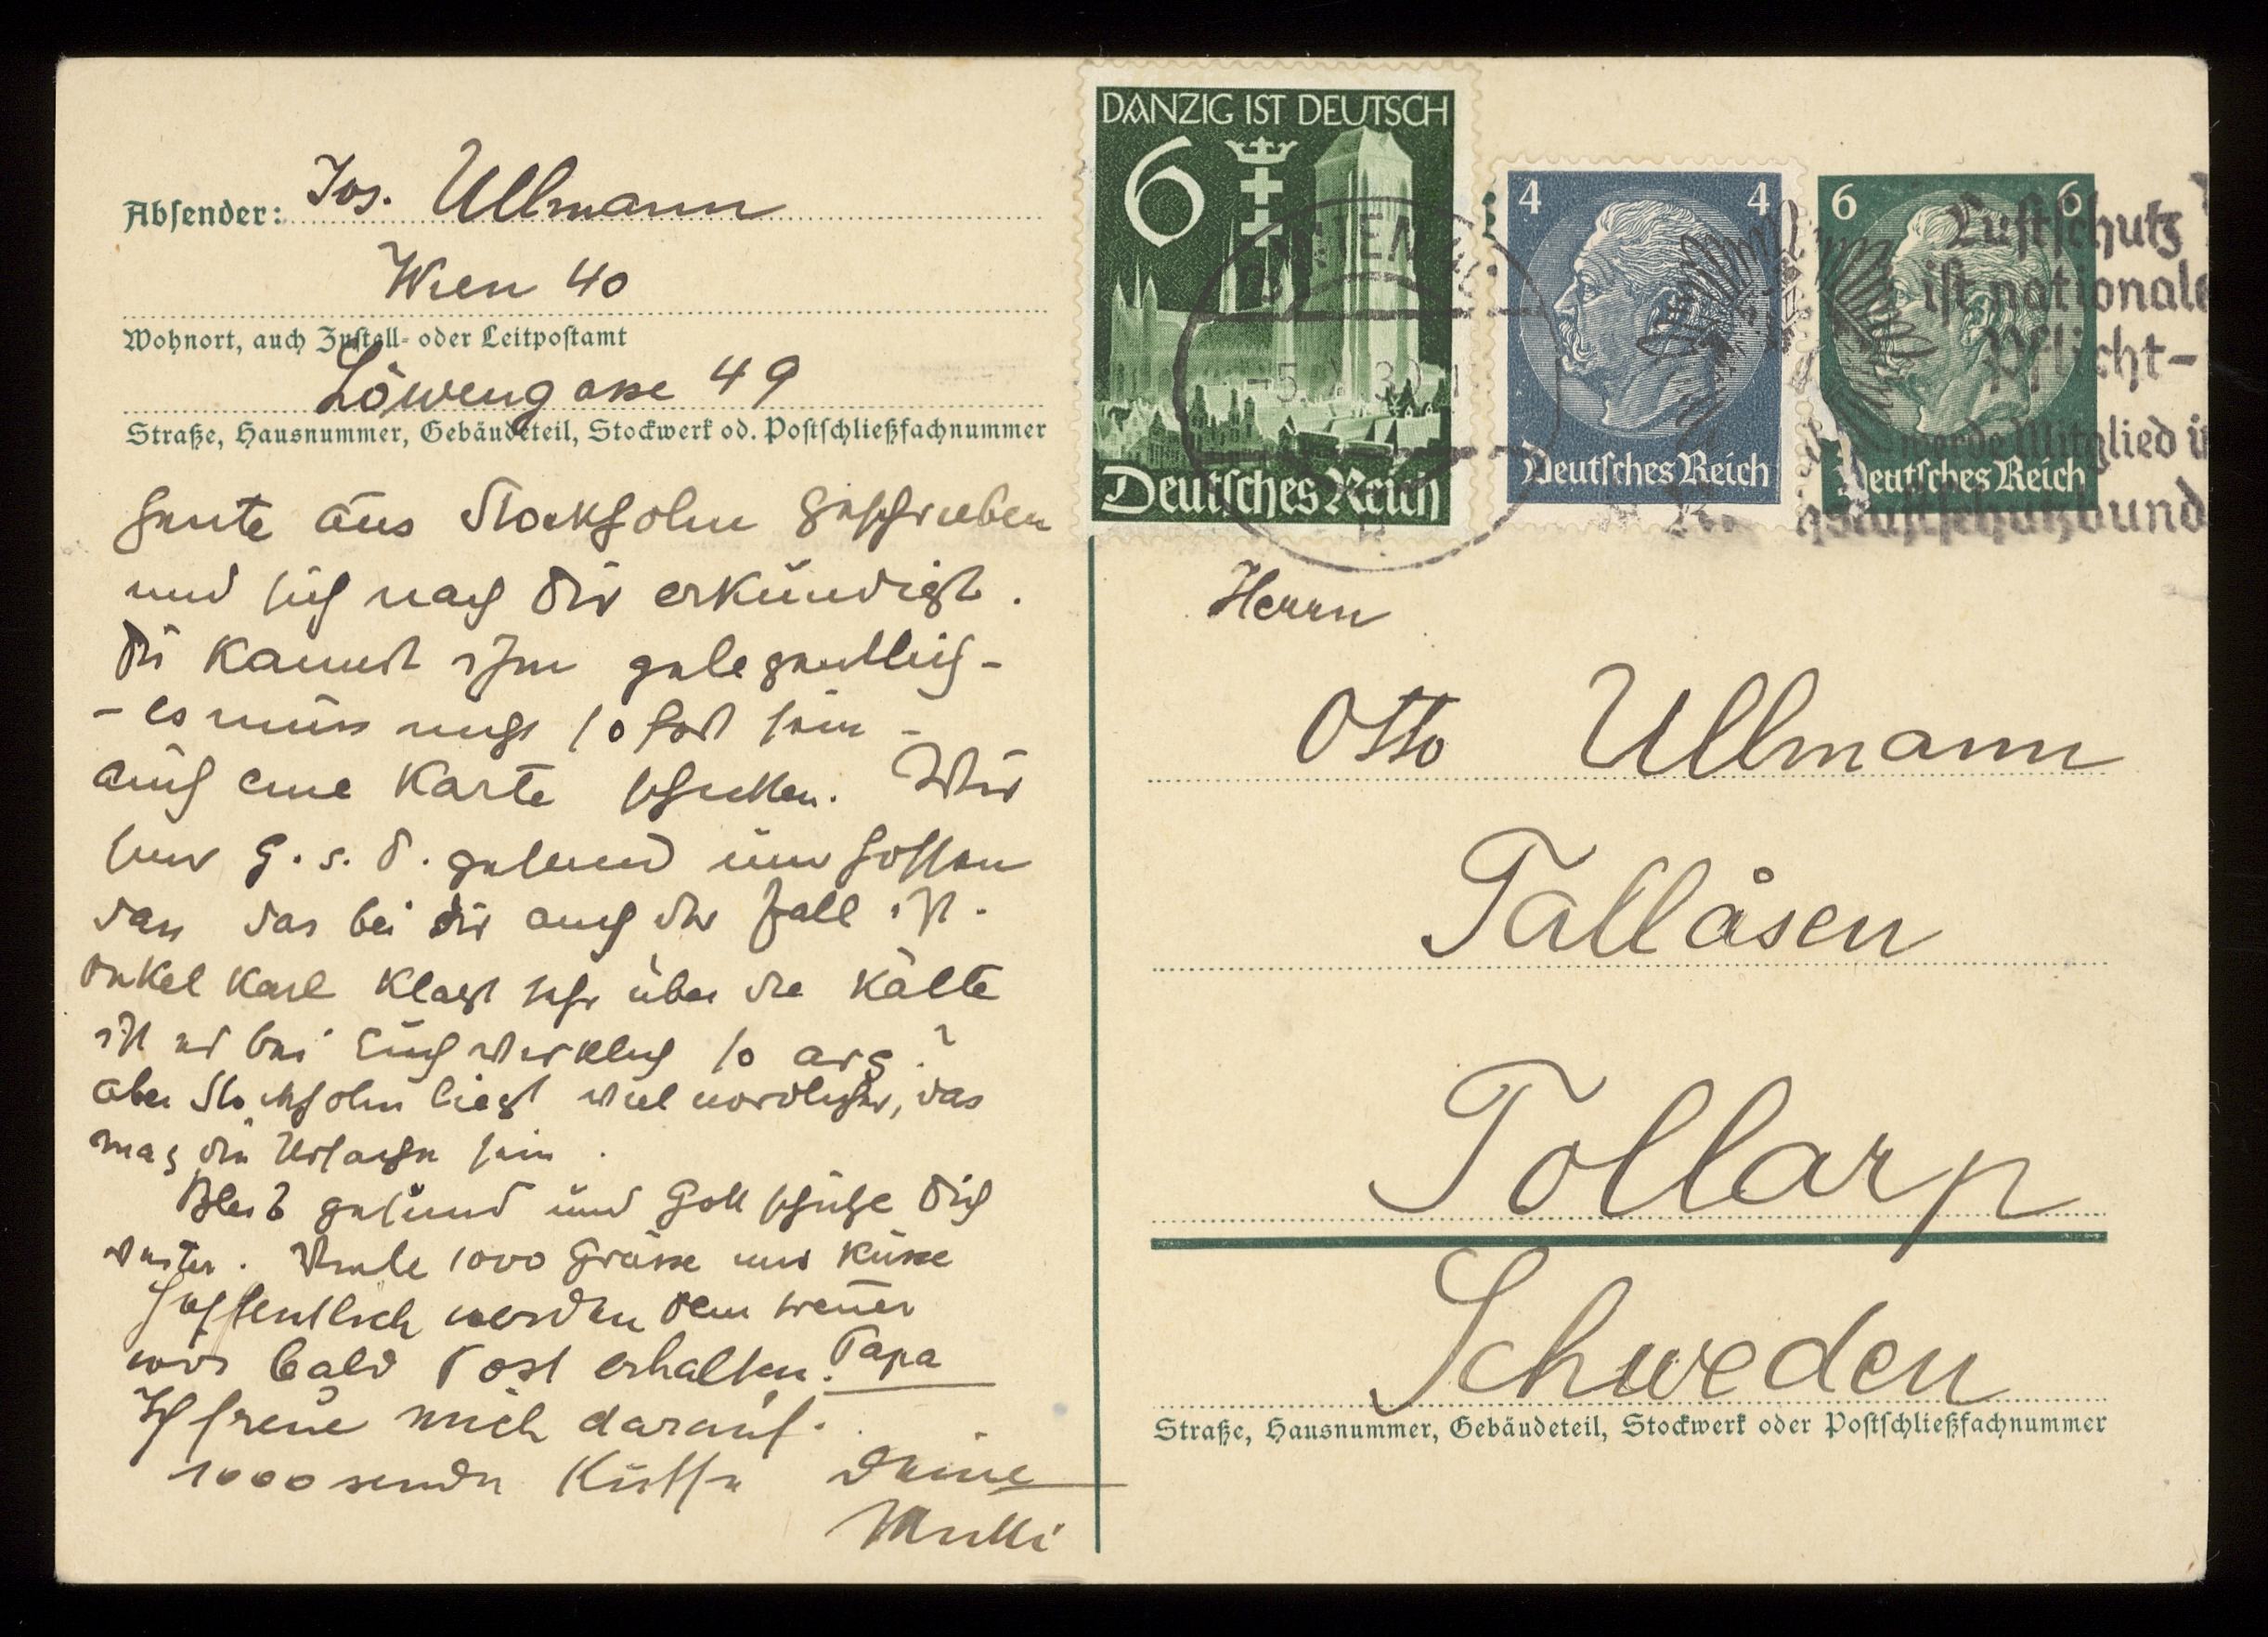 Absender: Jos. Ullmann
Wien 40
Wohnort, auch Zustell- oder Leitpostamt
Löwengasse 49
Straße, Hausnummer, Gebäudeteil, Stockwerk od. Postschließfachnummer
heute aus Stockholm geschrieben
und sich nach Dir erkundigt.
Du kannst ihm gelegentlich -
- es muss nicht sofort sein -
auch eine Karte schicken. Wir
sind G. s. D. gesund und hoffen
dass das bei Dir auch der Fall ist.
Onkel Karl klagt sehr über die Kälte
ist es bei Euch wirklich so arg?
aber Stockholm liegt viel nördlicher, das
mag die Ursache sein.
Bleib gesund und Gott schütze Dich
weiter. Viele 1000 Grüsse und Küsse
Hoffentlich werden Dein treuer
wir bald Post erhalten. Papa
Ich freue mich darauf.
1000sende Küsse Deine
Mutti
DANZIG IST DEUTSCH
6
Deutsches Reich
4 4
Deutsches Reich
6 6
Deutsches Reich
WIEN
Luftschutz
ist nationale
Pflicht-
werde Mitglied i
Reichsluftschutzbund
Herrn
Otto Ullmann
Tallåsen
Tollarp
Schweden
Straße, Hausnummer, Gebäudeteil, Stockwerk oder Postschließfachnummer